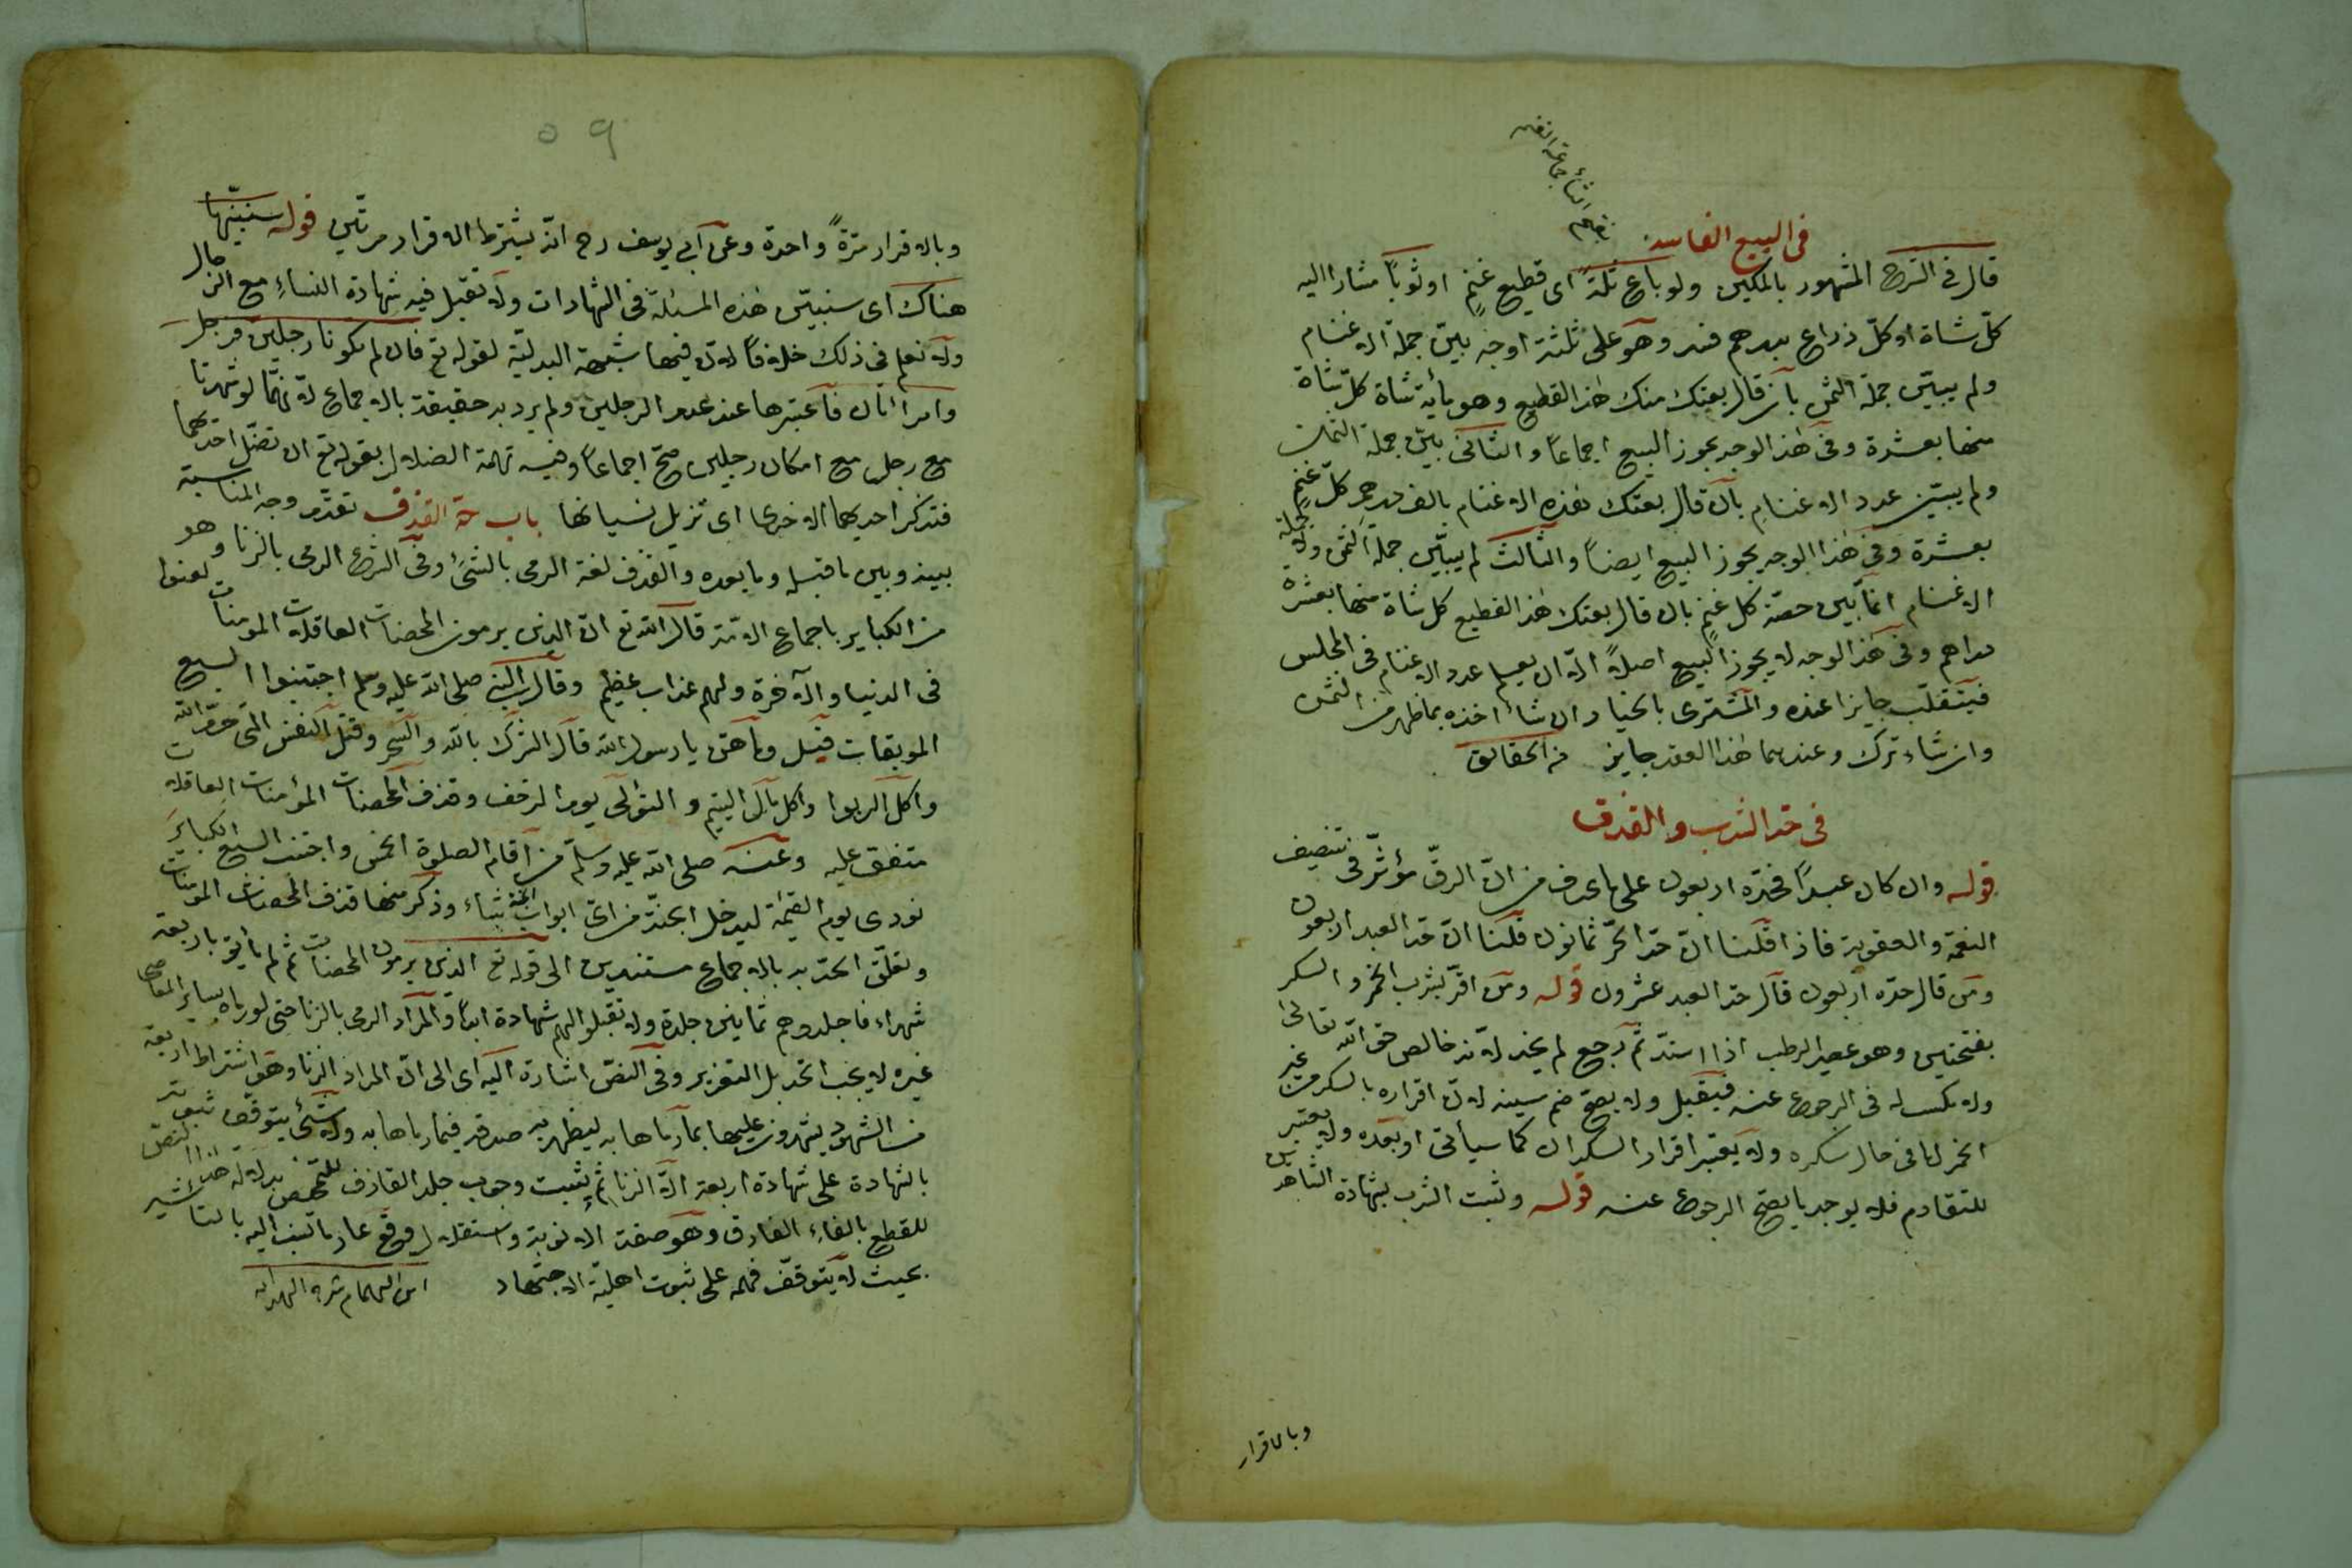 بفتح الثاء جماعة الغنم
فى البيع الفاسد
قال فى الشرح المشهور بالمكين ولو باع ثلة اى قطيع غنم او ثوبا مشارا اليه
كل شاة او كل ذراع بدرهم فسد وهو على ثلثة اوجه بين جملة الاغنام
ولم يبين جملة الثمن بان قال بعتك منك هذا القطيع وهو مأية شاة كل شاة
منها بعشرة وفى هذا الوجه يجوز البيع اجماعا والثانى بين جملة الثمن
ولم يبين عدد الاغنام بان قال بعتك هذه الاغنام بالف درهم كل غنم
بعشرة وفى هذا الوجه يجوز البيع ايضا والثالث لم يبين جملة الثمن ولا جملة
الاغنام انما بين حصة كل غنم بان قال بعتك هذا القطيع كل شاة منها بعشرة
دراهم وفى هذا الوجه لا يجوز البيع اصلا الا ان يعلم عدد الاغنام فى المجلس
فينقلب جايزا عنده والمشترى بالخيار ان شاء اخذه بما ظهر من الثمن
وان شاء ترك وعندهما هذا العقد جايز من الحقائق
فى حد الشرب والقذف
قوله وان كان عبدا فحده اربعون على ما عرف من ان الرق مؤثر فى تنصيف
النعمة والعقوبة فاذا قلنا ان حد الحر ثمانون قلنا ان حد العبد اربعون
ومن قال حده اربعون قال حد العبد عشرون قوله ومن اقر بشرب الخمر والسكر
بفتحتين وهو عصير الرطب اذا اشتد ثم رجع لم يحد لانه خالص حق الله تعالى
ولا مكذب له فى الرجوع عنه فيقبل ولا يصح ضم سينه لان اقراره بالسكر من غير
الخمر اما فى حال سكره ولا يعتبر اقرار السكران كما سيأتى او بعده ولا يعتبر
للتقادم فلا يوجد ما يصح الرجوع عنه قوله وثبت الشرب بشهادة الشاهدين
وبالاقرار
٥٩
وبالاقرار مرة واحدة وعن ابى يوسف رح انه يشترط الاقرار مرتين قوله سنبينها
هناك اى سنبين هذه المسئلة فى الشهادات ولا تقبل فيه شهادة النساء مع الرجال
ولا نعلم فى ذلك خلافا لان فيها شبهة البدلية لقوله تع فان لم يكونا رجلين فرجل
وامرأتان فاعتبرها عند عدم الرجلين ولم يرد به حقيقة بالاجماع لانهما لو شهدتا
مع رجل مع امكان رجلين صح اجماعا وفيه تهمة الضلال بقوله تع ان تضل احديهما
فتذكر احديهما الاخرى اى تزيل نسيانها باب حد القذف تقدم وجه المناسبة
بينه وبين ما قبله وما بعده والقذف لغة الرمى بالشئ وفى الشرع الرمى بالزنا وهو
من الكباير باجماع الامة قال الله تع ان الذين يرمون المحصنات الغافلات المؤمنات لعنوا
فى الدنيا والآخرة ولهم عذاب عظيم وقال النبى صلى الله عليه وسلم اجتنبوا السبع
الموبقات قيل وما هن يا رسول الله قال الشرك بالله والسحر وقتل النفس التى حرم الله
واكل الربوا واكل مال اليتيم والتولى يوم الزحف وقذف المحصنات المؤمنات الغافلات
متفق عليه وعنه صلى الله عليه وسلم من اقام الصلوة الخمس واجتنب السبع الكباير
نودى يوم القيمة ليدخل الجنة من اى ابواب الجنة شاء وذكر منها قذف المحصنات المؤمنات
وتعلق الحد به بالاجماع مستندين الى قوله تع الذين يرمون المحصنات ثم لم يأتوا باربعة
شهداء فاجلدوهم ثمانين جلدة ولا تقبلوا لهم شهادة ابدا والمراد الرمى بالزنا حتى لو رماه بساير المعاصى
غيره لا يجب الحد بل التعزير وفى النص اشارة اليه اى الى ان المراد الزنا وهو اشتراط اربعة
من الشهود يشهدون عليها بما رماها به ليظهر به صدقه فيما رماها به ولا شئ يتوقف ثبوته
بالشهادة على شهادة اربعة الا الزنا ثم يثبت وجوب جلد القاذف للمحصن بدلالة هذا النص
للقطع بالغاء الفارق وهو صفة الانوثة واستقلال وقع عار ما نسب اليه بالتأثير
بحيث لا يتوقف فهمه على ثبوت اهلية الاجتهاد ابن الهمام شرح الهدايه